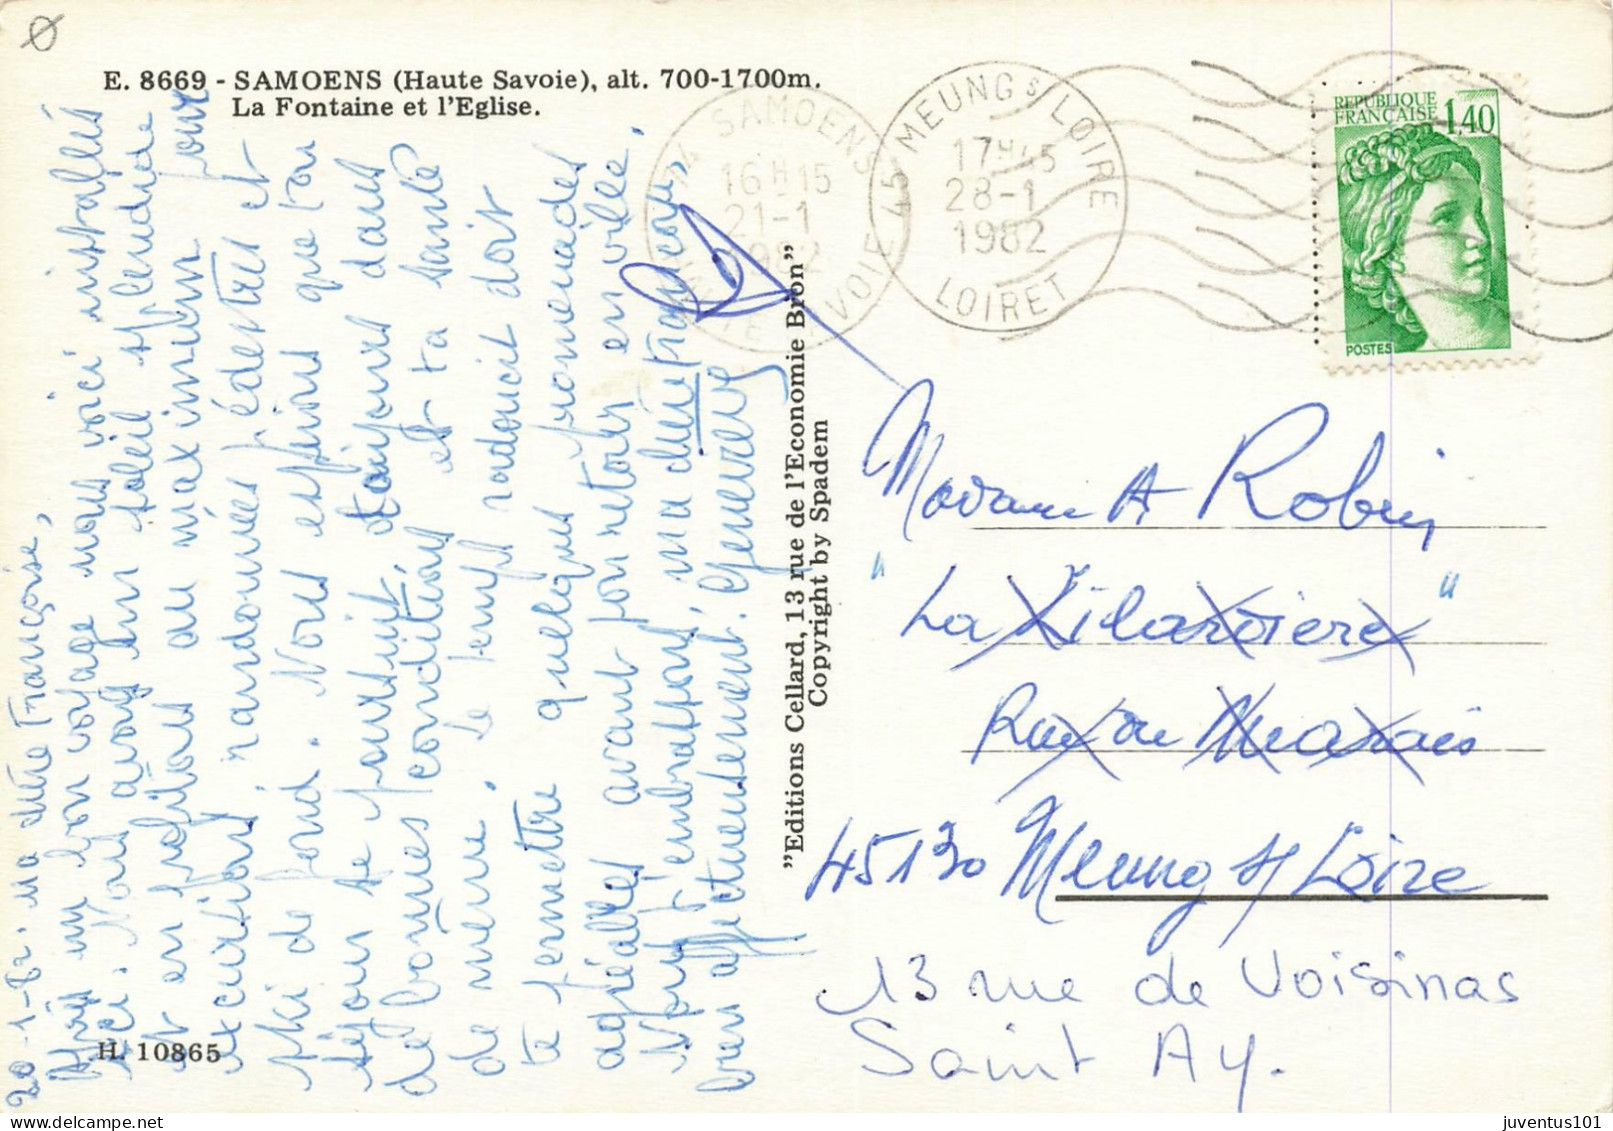 E. 8669 - SAMOENS (Haute Savoie), alt. 700-1700m.
La Fontaine et l'Eglise.
SAMOENS
16 H 15
21-1
1982
HAUTE SAVOIE
45 MEUNG S/ LOIRE
17 H 15
28-1
1982
LOIRET
REPUBLIQUE
FRANÇAISE
1,40
POSTES
20-1-82. Ma chère Françoise,
Après un bon voyage nous voici installés
ici. Nous avons un soleil splendide
et en profitons au maximum pour
excursions, randonnées pédestres et
ski de fond. Nous espérons que ton
séjour se poursuit toujours dans
de bonnes conditions et ta santé
de même. Le temps radoucit doit
te permettre quelques promenades
agréables avant ton retour en ville.
Nous t'embrassons, ma chère Françoise,
bien affectueusement. Geneviève
"Editions Cellard, 13 rue de l'Economie Bron"
Copyright by Spadem
Madame A Robin
"La Zilardière"
Rue du Marais
45130 Meung s/ Loire
13 rue de Voisinas
Saint Ay.
H. 10865
juventus101